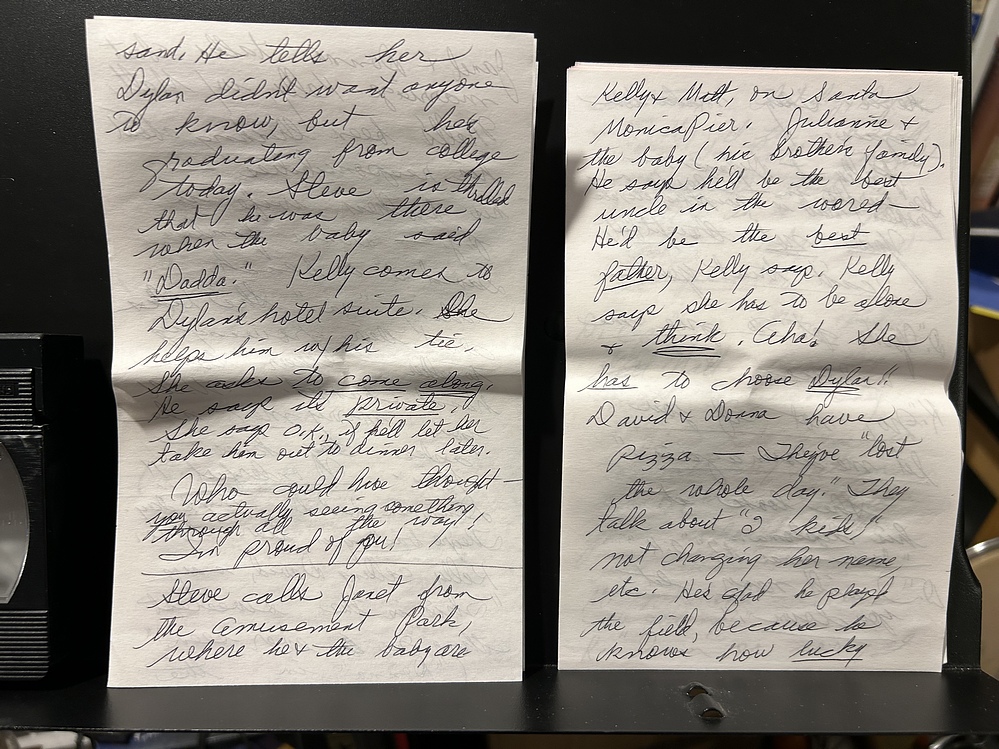 sand. He tells her
Dylan didn't want anyone
to know, but he's
graduating from college
today. Steve is thrilled
that he was there
when the baby said
"Dadda." Kelly comes to
Dylan's hotel suite. She
helps him w/ his tie.
She asks to come along.
He says it's private.
She says O.K., if he'll let her
take him out to dinner later.
Who could have thought—
you actually seeing something
through all the way!
I'm proud of you!
Steve calls Janet from
the amusement Park,
where he & the baby are
Kelly & Matt, on Santa
Monica Pier. Julianne &
the baby (his brother's family).
He says he'll be the best
uncle in the world—
He'd be the best
father, Kelly says. Kelly
says she has to be alone
& think. Aha! She
has to choose Dylan!!
David & Donna have
pizza — They've "lost
the whole day." They
talk about "2 kids,"
not changing her name,
etc. He's glad he played
the field, because he
knows how lucky